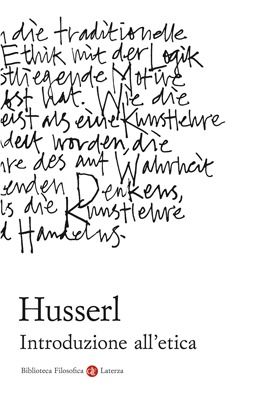 n die traditionelle
Ethik mit der Logik
stiegende Motive
sst hat. Wie die
eist als eine Kunstlehre
delt worden, die
re des auf Wahrheit
enden Denkens,
s die Kunstlehre
d Handelns.
Husserl
Introduzione all'etica
Biblioteca Filosofica Laterza